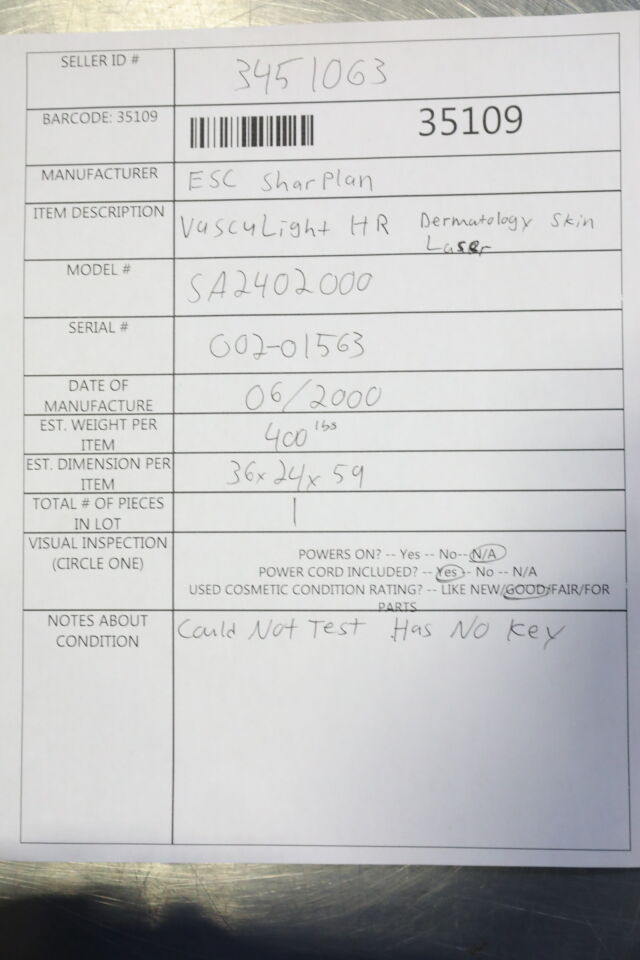 SELLER ID # 3451063
BARCODE: 35109 35109
MANUFACTURER ESC Sharplan
ITEM DESCRIPTION VascuLight HR Dermatology Skin
Laser
MODEL # SA2402000
SERIAL # 002-01563
DATE OF
MANUFACTURE 06/2000
EST. WEIGHT PER
ITEM 400 lbs
EST. DIMENSION PER
ITEM 36x24x59
TOTAL # OF PIECES
IN LOT 1
VISUAL INSPECTION
(CIRCLE ONE)
POWERS ON? -- Yes -- No--N/A
POWER CORD INCLUDED? -- Yes -- No -- N/A
USED COSMETIC CONDITION RATING? -- LIKE NEW/GOOD/FAIR/FOR
PARTS
NOTES ABOUT
CONDITION
Could Not Test Has No Key